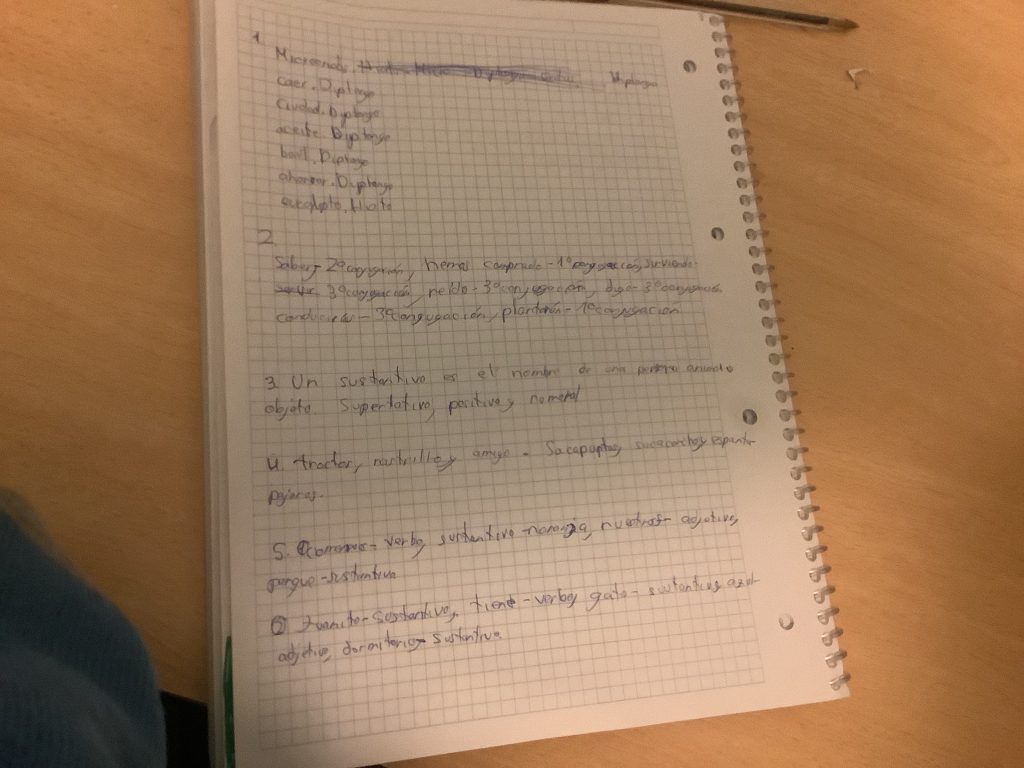 1.
Microondas. Diptongo
caer. Diptongo
Ciudad. Diptongo
aceite. Diptongo
baul. Diptongo
ahorrar. Diptongo
eucalipto. Hiato
2
Saber- 2ª conjugación, hemos comprado - 1ª conjugación, sirviendo-
3ª conjugación, reído - 3ª conjugación, digo - 3ª conjugación
conducirán - 3ª conjugación, plantarán - 1ª conjugación
3. Un sustantivo es el nombre de una persona animal o
objeto. Superlativo, positivo y
4. tractor, rastrillo y amigo - Sacapuntas, sacacorchos, espanta-
pájaros.
5. verbo, sustantivo - naranja, nuestros - adjetivo,
parque - sustantivo
6 Juanito - Sustantivo, tiene - verbo, gato - sustantivo, azul-
adjetivo, dormitorio - sustantivo